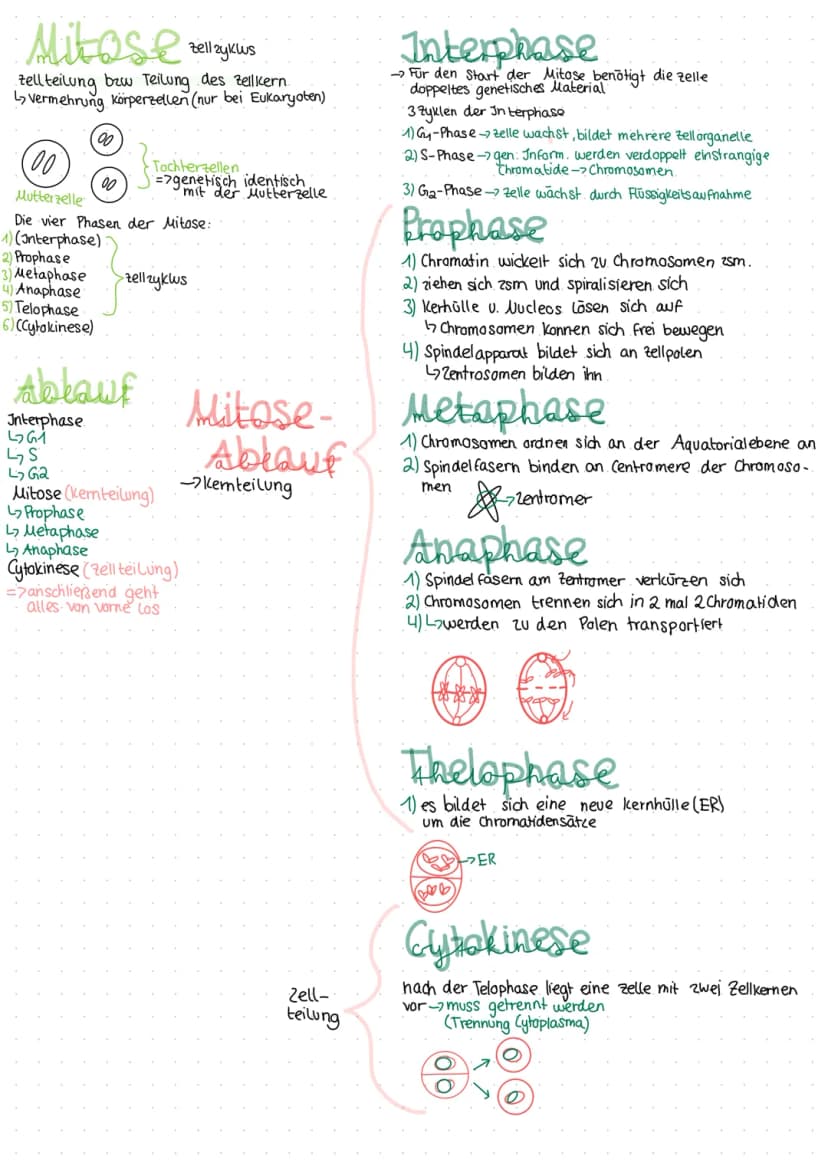 Mitose zellzyklus
zellteilung bzw Teilung des zellkern
↳ Vermehrung Körperzellen (nur bei Eukaryoten)
Tochterzellen
=> genetisch identisch
mit der Mutterzelle
Mutterzelle
Die vier Phasen der Mitose:
1) (Interphase)
2) Prophase
3) Metaphase
4) Anaphase
5) Telophase
6) (Cytokinese)
zellzyklus
Ablauf
Interphase
↳ G1
↳ S
↳ G2
Mitose (Kernteilung)
↳ Prophase
↳ Metaphase
↳ Anaphase
Cytokinese (zellteilung)
=> anschließend geht
alles von vorne los
Mitose-
Ablauf
→ Kernteilung
Interphase
→ Für den Start der Mitose benötigt die zelle
doppeltes genetisches Material
3 zyklen der Interphase
1) G1-Phase → zelle wächst, bildet mehrere zellorganelle
2) S-Phase → gen. Inform. werden verdoppelt einstrangige
Chromatide → Chromosomen
3) G2-Phase → zelle wächst durch Flüssigkeitsaufnahme
Prophase
1) Chromatin wickelt sich zu Chromosomen zsm.
2) ziehen sich zsm und spiralisieren sich
3) Kerhülle u. Nucleos lösen sich auf
↳ Chromosomen konnen sich frei bewegen
4) Spindelapparat bildet sich an zellpolen
↳ Zentrosomen bilden ihn
Metaphase
1) Chromosomen ordnen sich an der Äquatorialebene an
2) Spindelfasern binden an Centromere der Chromoso-
men
→ zentromer
Anaphase
1) Spindelfasern am Zentromer verkürzen sich
2) Chromosomen trennen sich in 2 mal 2 Chromatiden
4) ↳ werden zu den Polen transportiert
Thelophase
1) es bildet sich eine neue Kernhülle (ER)
um die Chromatidensätze
→ ER
Cytokinese
nach der Telophase liegt eine zelle mit zwei Zellkernen
vor → muss getrennt werden
(Trennung Cytoplasma)
Zell-
teilung